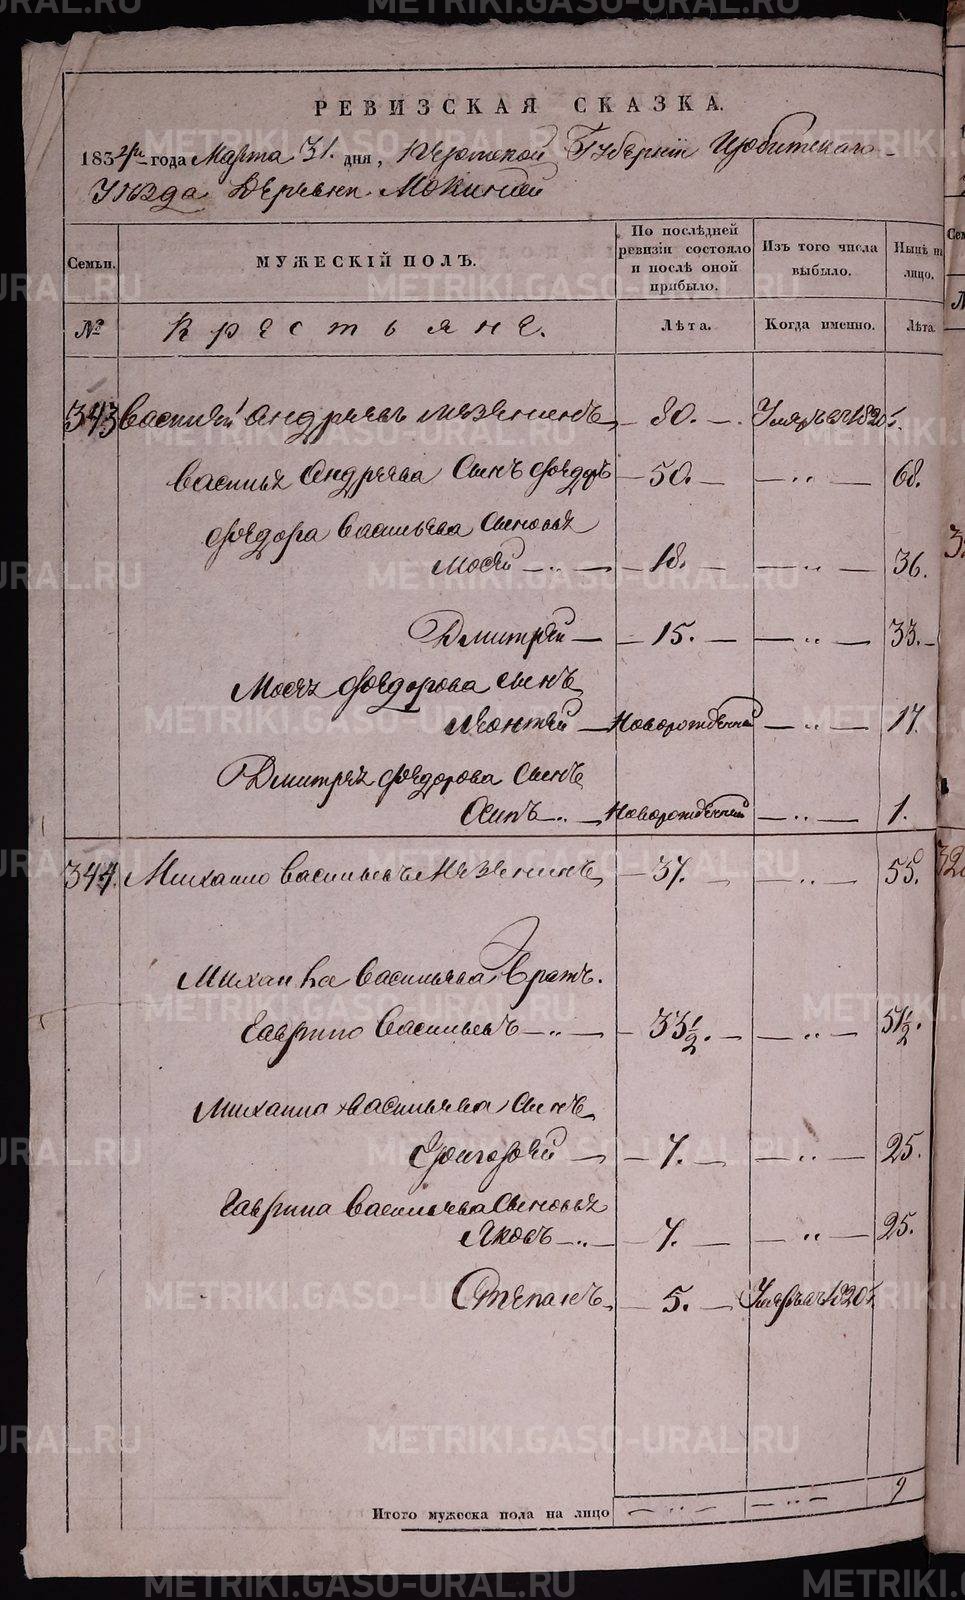 РЕВИЗСКАЯ СКАЗКА.
183 года Марта 31. дня, Пермской Губернии Ирбитскаго
Уезда Деревни Мокиной
Семьи.
МУЖЕСКІЙ ПОЛЪ.
По послѣдней ревизіи состояло и послѣ оной прибыло.
Изъ того числа выбыло.
Нынѣ на лицо.
№
Крестьяне.
Лѣта.
Когда именно.
Лѣта.
343 Василей Андреевъ Мезенинъ — 80. — Умре въ 1820 г.
Василья Андреева Сынъ Федоръ — 50. — — „ — 68.
Федора Васильева Сыновья
Мосей — „ — 18. — — „ — 36.
Дмитрей — 15. — — „ — 33.
Мосея Федорова Сынъ
Леонтей — Новорожденной — „ — 17.
Дмитрея Федорова Сынъ
Осипъ — „ — Новорожденной — „ — 1.
344. Михайло Васильевъ Мезенинъ — 37. — — „ — 55.
Михайла Васильева Братъ.
Гаврило Васильевъ — „ — 33 1/2. — — „ — 51 1/2.
Михайла Васильева Сынъ
Григорей — 7. — — „ — 25.
Гаврила Васильева Сыновья
Яковъ — „ — 7. — — „ — 25.
Степанъ — 5. — Умре въ 1820 г.
Итого мужеска пола на лицо — „ — — „ — 9
METRIKI.GASO-URAL.RU